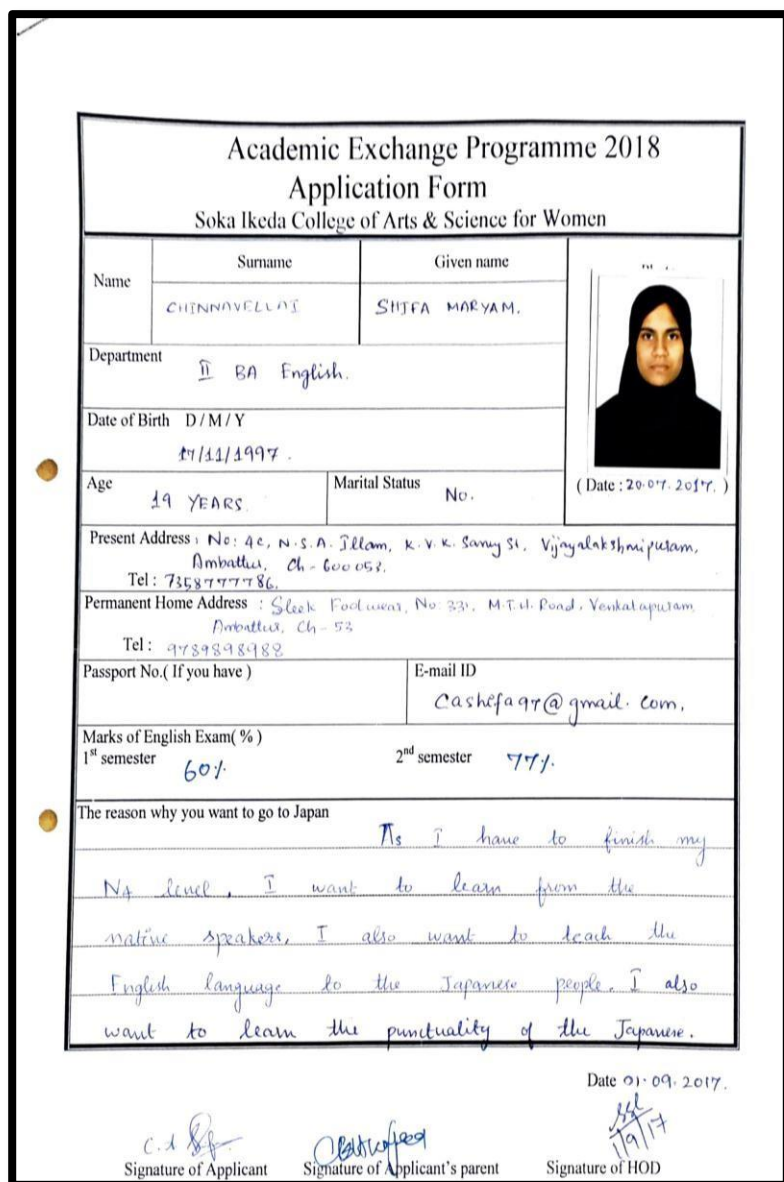 Academic Exchange Programme 2018
Application Form
Soka Ikeda College of Arts & Science for Women
Name
Surname
Given name
CHINNAVELLAI
SHIFA MARYAM.
Department
II BA English.
Date of Birth D/M/Y
17/11/1997.
Age
19 YEARS
Marital Status
No.
(Date: 20.07.2017.)
Present Address: No: 4c, N.S.A. Illam, K.V.K. Samy St, Vijayalakshmipuram,
Ambattur, Ch-600053.
Tel: 7358777786.
Permanent Home Address : Sleek Footwear, No 331, M.T.H. Road, Venkatapuram
Ambattur, Ch-53
Tel: 9789898982
Passport No.( If you have )
E-mail ID
@gmail.com.
Marks of English Exam( % )
1st semester 60%
2nd semester 77%
The reason why you want to go to Japan
As I have to finish my
N4 level, I want to learn from the
native speakers, I also want to teach the
English language to the Japanese people. I also
want to learn the punctuality of the Japanese.
Date 01.09.2017.
1/9/17
Signature of Applicant Signature of Applicant's parent Signature of HOD